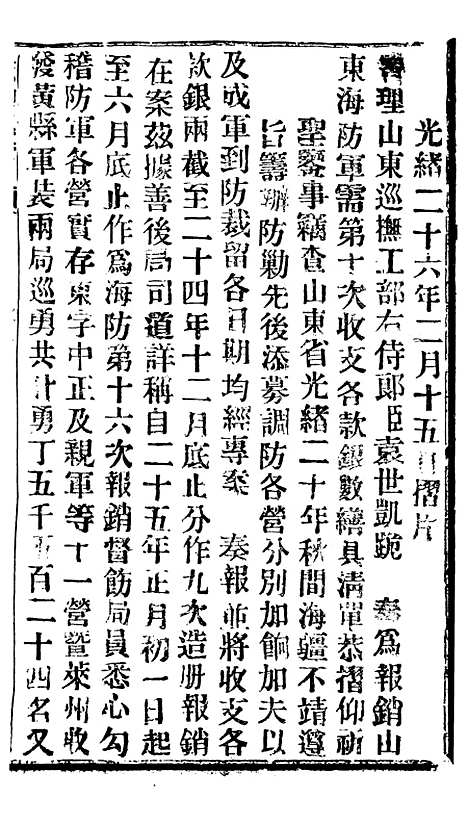 光緒二十六年二月十五日摺片
署理山東巡撫工部右侍郎臣袁世凱跪 奏為報銷山
東海防軍需第十次收支各款銀數繕具清單恭摺仰祈
聖鑒事竊查山東省光緒二十年秋間海疆不靖遵
旨籌辦防勦先後添募調防各營分別加餉加夫以
及成軍到防裁留各日期均經專案 奏報並將收支各
款銀兩截至二十四年十二月底止分作九次造册報銷
在案茲據善後局司道詳稱自二十五年正月初一日起
至六月底止作為海防第十六次報銷督飭局員悉心勾
稽防軍各營實存東字中正及親軍等十一營暨萊州收
發黃縣軍裝兩局巡勇共計勇丁五千五百二十四名又